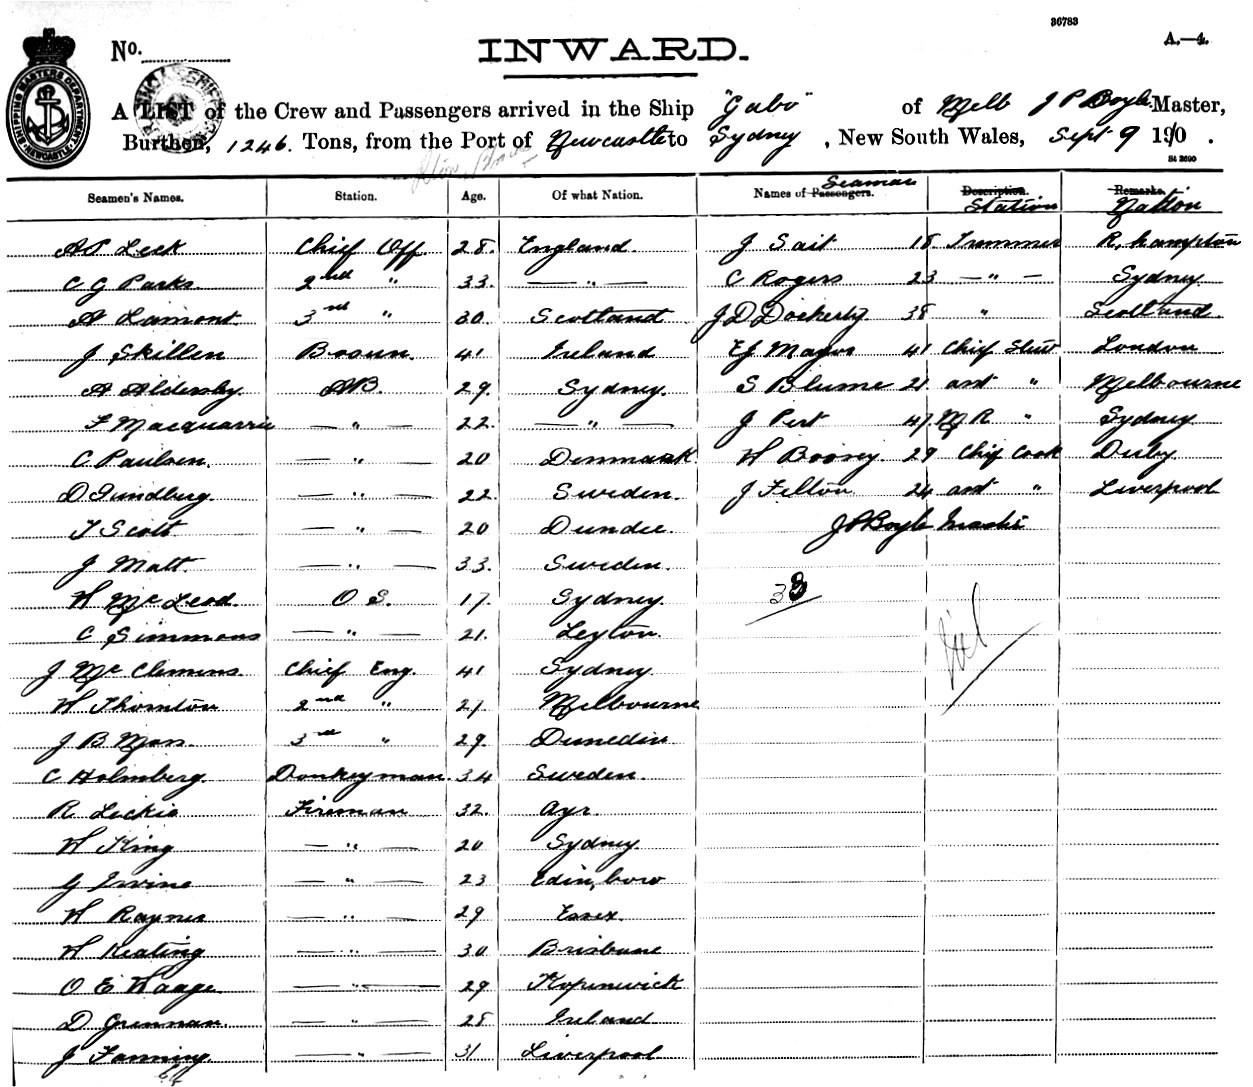 36783
A.—4.
No.
INWARD.
A LIST of the Crew and Passengers arrived in the Ship "Gabo" of Melb J P Boyle Master,
Burthen, 1246 Tons, from the Port of Newcastle to Sydney, New South Wales, Sept 9 1910.
St 3690
Seamen's Names. Station. Age. Of what Nation. Names of Passengers. Seaman Description. Station Remarks. Nation
A P Leck Chief Off 28. England J Sait 18 Trimmer R,hampton
C G Parks 2nd " 33. — " — C Rogers 23 — " — Sydney
A Lamont 3rd " 30. Scotland J D Dockerty 38 " Scotland
J Skillen Bosun. 41 Ireland E J Mayor 41 Chief Stew London
A Aldersby. AB. 29. Sydney. S Blume 21. asst " Melbourne
F Macquarrie — " — 22. — " — J Pert 47. M R " Sydney
C Paulsen. — " — 20 Denmark W Boosey 29 Chief Cook Derby
D Gundberg. — " — 22. Sweden. J Felton 24 asst " Liverpool
T Scott — " — 20 Dundee J P Boyle Master
J Matt. — " — 33. Sweden.
W McLeod. O S. 17. Sydney. 33
C Simmons — " — 21. Leyton.
J McClemens. Chief Eng. 41 Sydney
W Thornton 2nd " 27. Melbourne
J B Mars. 3rd " 29. Dunedin
C Holmberg. Donkeyman. 34 Sweden.
R Leckie Fireman 32. Ayr.
W King — " — 20 Sydney.
G Irvine — " — 23 Edin,boro
W Rayner — " — 29 Essex.
W Keating — " — 30 Brisbane
O E Waage — " — 29 Kopenwick
D Grennan. — " — 28 Ireland
J Fanning. — " — 31 Liverpool
SHIPPING MASTERS DEPARTMENT NEWCASTLE